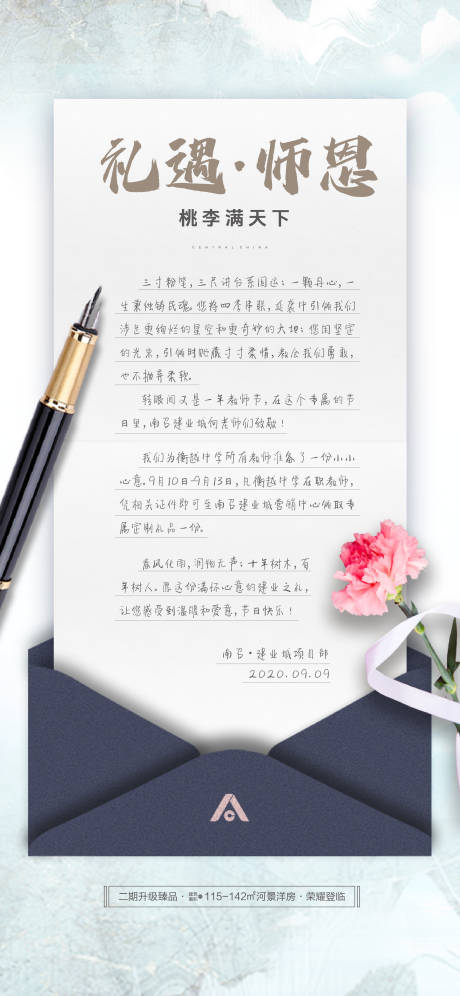 礼遇·师恩
桃李满天下
CENTRAL CHINA
三寸粉笔，三尺讲台系国运；一颗丹心，一
生秉烛铸民魂。您将四季
引领我们
涉足更绚烂的星空和更奇妙的大地；您用坚定
的光亮，引领时贮藏寸寸柔情，教会我们勇敢，
也不抛弃柔软。
转眼间又是一年教师节，在这个专属的节
日里，南召建业城向老师们致敬！
我们为衡越中学所有教师准备了一份小小
心意。9月10日-9月13日，凡衡越中学在职教师，
凭相关证件即可至南召建业城营销中心领取专
属定制礼品一份。
春风化雨，润物无声；十年树木，百
年树人。愿这份满怀心意的建业之礼，
让您感受到温暖和爱意，节日快乐！
南召·建业城项目部
2020.09.09
二期升级臻品·建面约115-142㎡河景洋房·荣耀登临